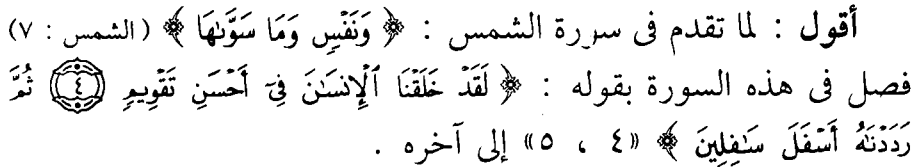 أقول : لما تقدم فى سورة الشمس : ﴿ وَنَفْسٍ وَمَا سَوَّىٰهَا ﴾ (الشمس : ٧)
فصل فى هذه السورة بقوله : ﴿ لَقَدْ خَلَقْنَا ٱلْإِنسَـٰنَ فِىٓ أَحْسَنِ تَقْوِيمٍ ٤ ثُمَّ
رَدَدْنَـٰهُ أَسْفَلَ سَـٰفِلِينَ ﴾ «٤ ، ٥» إلى آخره .